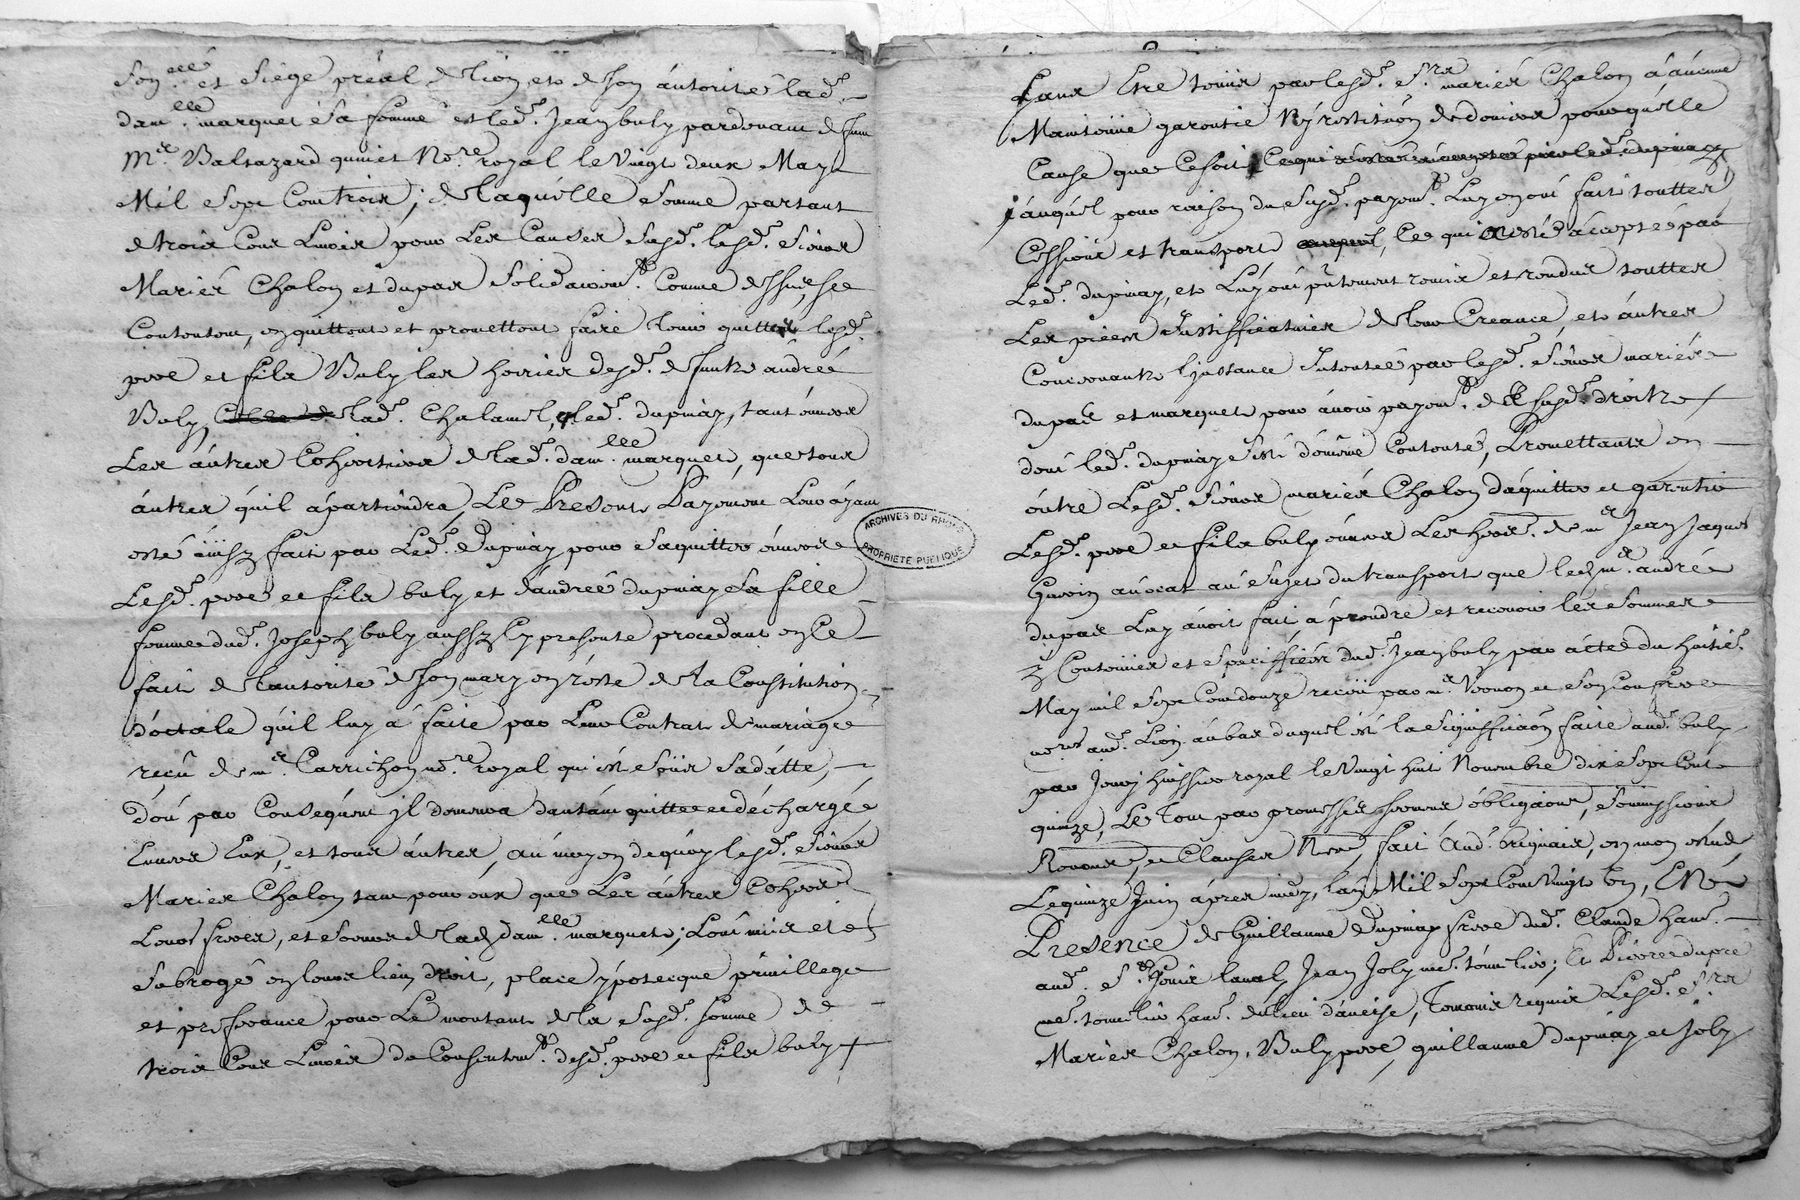 Son.ëëë et siege préal de Lion, et de son áutorité lad.e
dam.lle marquet sa femme et led. Jean buly pardevant defunt
M.e Baltazard guinet No.re royal le Vingt deux May
Mil Sept Cent trois; de laquelle somme partant
de trois Cens Livres pour les Causes susd. lesd. sieurs
Mariés Chalon et dupas solidairem.t Comme dessus se
Contentent, en quittent et promettent faire tenir quittes lesd.
pere et fils Buly les hoiries desd. defunts andré
Buly, lad. Chalamel, led. dupinay, tant envers
Les áutres Cohéritiers de lad. dam.lle marquet, que tous
áutres qu'il ápartiendra, Le Present Payement Leur áyant
esté áinsy fait par Led. Dupinay pour s'aquitter énvers
Lesd. pere et fils buly et d'andreé dupinay sa fille
femme dud. Joseph buly aussy Cy presente procedant en Ce
fait de lautorité de son mary en reste de la Constitution
doctale qu'il luy á faite par Leur Contrat de mariage
reçû de m.e Carrichon no.re royal qui est sous sa datte,
d'oú par Consequent il demeura d'autant quitte et déchargé
Envers Eux, et tous áutres, áu moyen dequoy lesd. sieurs
Mariés Chalon tant pour eux que Les áutres Cohers
Leurs freres, et soeurs de lad. dam.lle marquet; L'ont mis et
subrogé en leurs lieu droit, place ypotecque privillege
et preferance pour Le montant de la susd. somme de
trois Cens Livres du Consentem.t desd. pere et fils buly
sans Etre tenus par lesd. S.rs mariés Chalon á áucune
Maintenüe garentie Ny restitution de deniers pour quelle
Cause que Ce soit
jáuquel pour raison du susd. payem.t Luy en ont fait touttes
Cessions et transport, Ce qui a esté áccepté par
Led. dupinay, et Luy ont pntement remis et rendus touttes
Les pieces Justifficatives de leur Creance, et áutres
Concernants l'Instance Intentée par lesd. sieurs mariés
dupas et marquet pour ávoir payem.t de susd. droits
dont led. dupinay s'est démême Contenté, Promettants en
outre Lesd. sieurs mariés Chalon d'aquitter et garentir
Lesd. pere et fils buly envers Les hoirs. de m.e Jean Jaques
Guerin avocat áu sujet du transport que led. m.e andré
dupas Luy ávoit fait á prendre et recevoir les sommes
y Contenües et speciffiées dud. Jean buly par ácte du huitié.
May mil Sept Cent douze receu par m.e Vernon et son Confrere
no.res aud. Lion áu bas duquel est la signiffication faite aud. buly
par Jouy huissier royal le Vingt huit Novembre dix Sept Cent
quinze, Le tout par promesses serments obligations, soumissions
Renons, et Clauses Nere, fait áud. brignais, en mon etude
Le quinze Juin ápres midy, l'an Mil Sept Cent Vingt Un, En
Presence de Guillaume Dupinay frere dud. Claude hant.
aud. S.t Genis laval, Jean Joly me. tonnelier; Et Pierre dupré
me. tonnelier hant. du lieu d'áneise, Temoins requis Lesd. S.rs
Mariés Chalon, Buly pere, guillaume dupinay et Joly
ARCHIVES DU RHONE
PROPRIETE PUBLIQUE